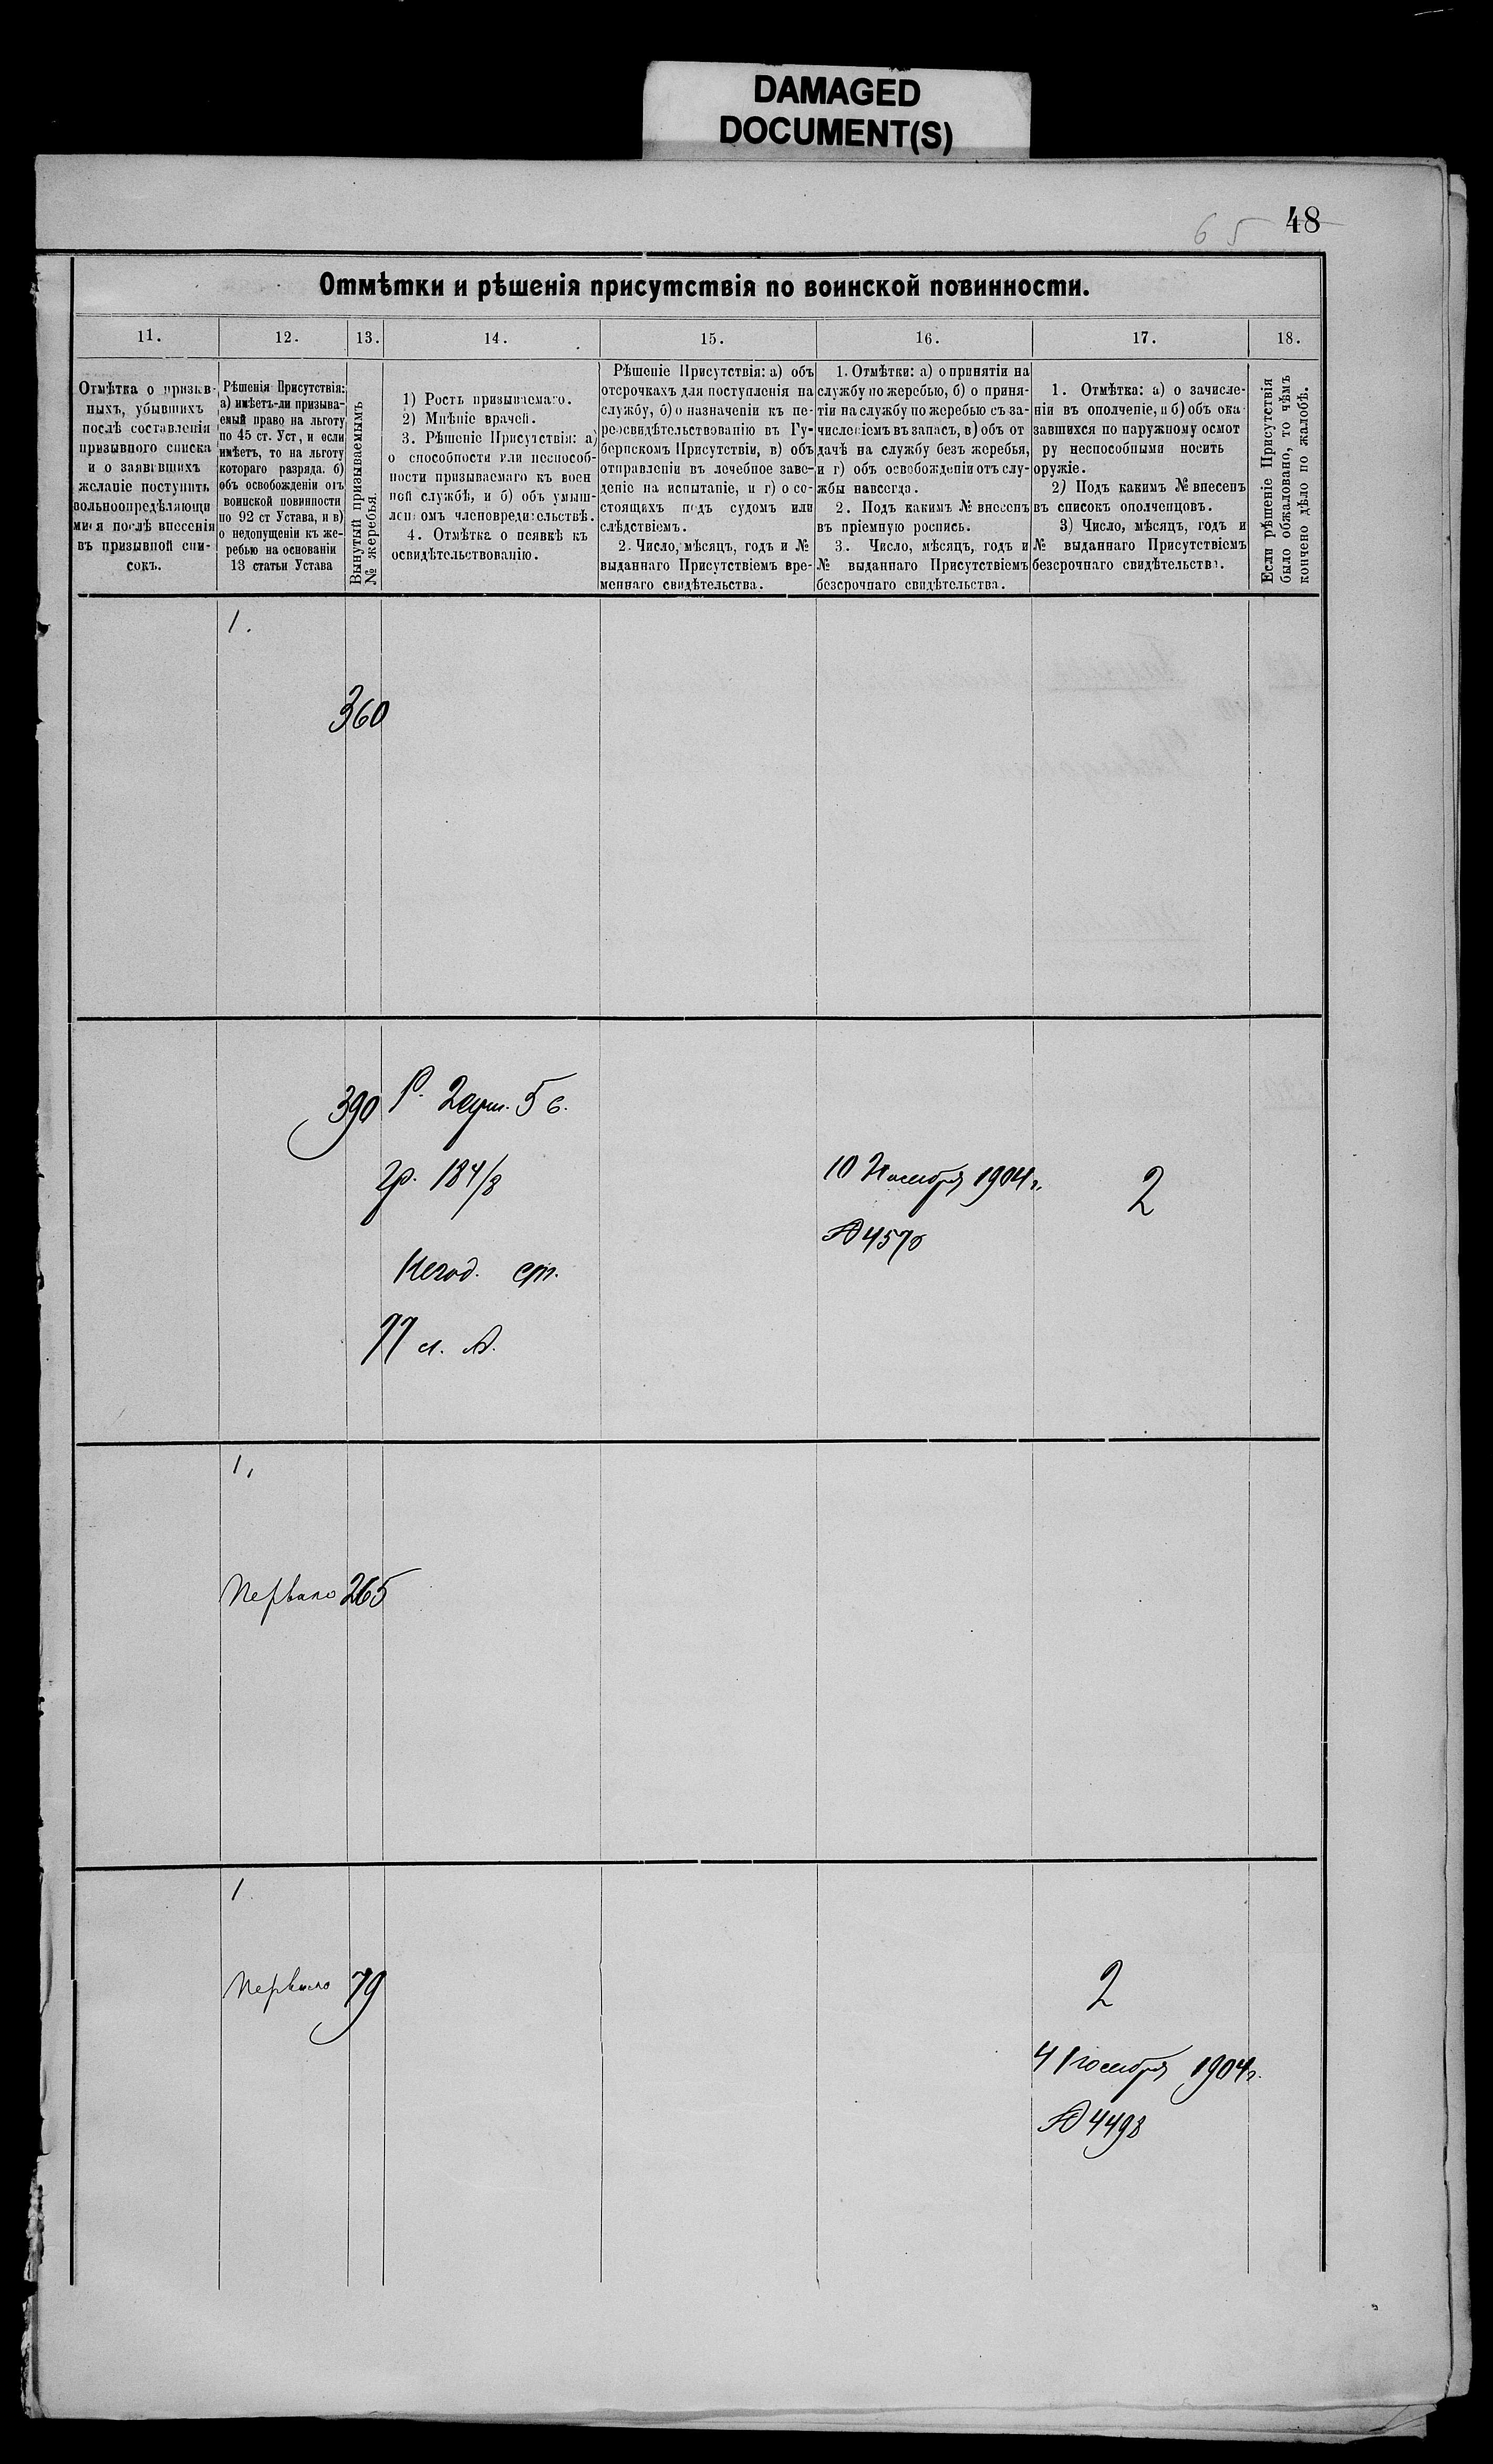 DAMAGED
DOCUMENT(S)
65 48
Отмѣтки и рѣшенія присутствія по воинской повинности.
11. 12. 13. 14. 15. 16. 17. 18.
Отмѣтка о призыв-
ныхъ, убывшихъ
послѣ составленія
призывного списка
и о заявившихъ
желаніе поступить
вольноопредѣляющи
мися послѣ внесенія
въ призывной спи-
сокъ.
Рѣшенія Присутствія:
а) имѣетъ-ли призыва-
емый право на льготу
по 45 ст. Уст, и если
имѣетъ, то на льготу
котораго разряда. б)
объ освобожденіи отъ
воинской повинности
по 92 ст Устава, и в)
о недопущеніи къ же-
ребью на основаніи
13 статьи Устава
Вынутый призываемымъ
№ жеребья.
1) Ростъ призываемаго.
2) Мнѣніе врачей.
3. Рѣшеніе Присутствія: а)
о способности или неспособ-
ности призываемаго къ воен
ной службѣ, и б) объ умыш-
ленномъ членовредительствѣ.
4. Отмѣтка о неявкѣ къ
освидѣтельствованію.
Рѣшеніе Присутствія: а) объ
отсрочкахъ для поступленія на
службу, б) о назначеніи къ пе-
реосвидѣтельствованію въ Гу-
бернскомъ Присутствіи, в) объ
отправленіи въ лечебное заве-
деніе на испытаніе, и г) о со-
стоящахъ подъ судомъ или
слѣдствіемъ.
2. Число, мѣсяцъ, годъ и №
выданнаго Присутствіемъ вре-
меннаго свидѣтельства.
1. Отмѣтки: а) о принятіи на
службу по жеребью, б) о приня-
тіи на службу по жеребью съ за-
численіемъ въ запасъ, в) объ от
дачѣ на службу безъ жеребья,
и г) объ освобожденіи отъ слу-
жбы навсегда.
2. Подъ какимъ № внесенъ
въ пріемную роспись.
3. Число, мѣсяцъ, годъ и
№ выданнаго Присутствіемъ
безсрочнаго свидѣтельства.
1. Отмѣтка: а) о зачисле-
ніи въ ополченіе, и б) объ ока
завшихся по наружному осмот
ру неспособными носить
оружіе.
2) Подъ какимъ № внесенъ
въ списокъ ополченцовъ.
3) Число, мѣсяцъ, годъ и
№ выданнаго Присутствіемъ
безсрочнаго свидѣтельства.
Если рѣшеніе Присутствія
было обжаловано, то чѣмъ
кончено дѣло по жалобѣ.
1.
360
390 Р. 2арш. 5 в.
гр. 184/8
Негод. ст.
77 л. А.
10 Ноября 1904 г.
№ 4570
2
1.
Перваго 265
1
Перваго 79
2
4 Ноября 1904 г.
№ 4498